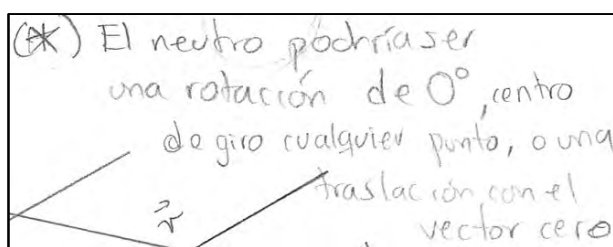 (*) El neutro podría ser
una rotación de 0°, centro
de giro cualquier punto, o una
traslación con el
vector cero
v